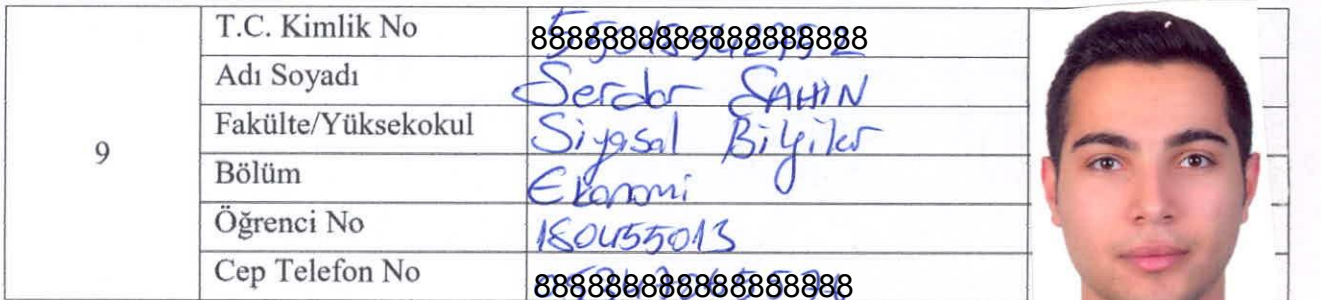 9
T.C. Kimlik No 8888888888888888888
Adı Soyadı Serdar ŞAHİN
Fakülte/Yüksekokul Siyasal Bilgiler
Bölüm Ekonomi
Öğrenci No 180455013
Cep Telefon No 888888888888888888